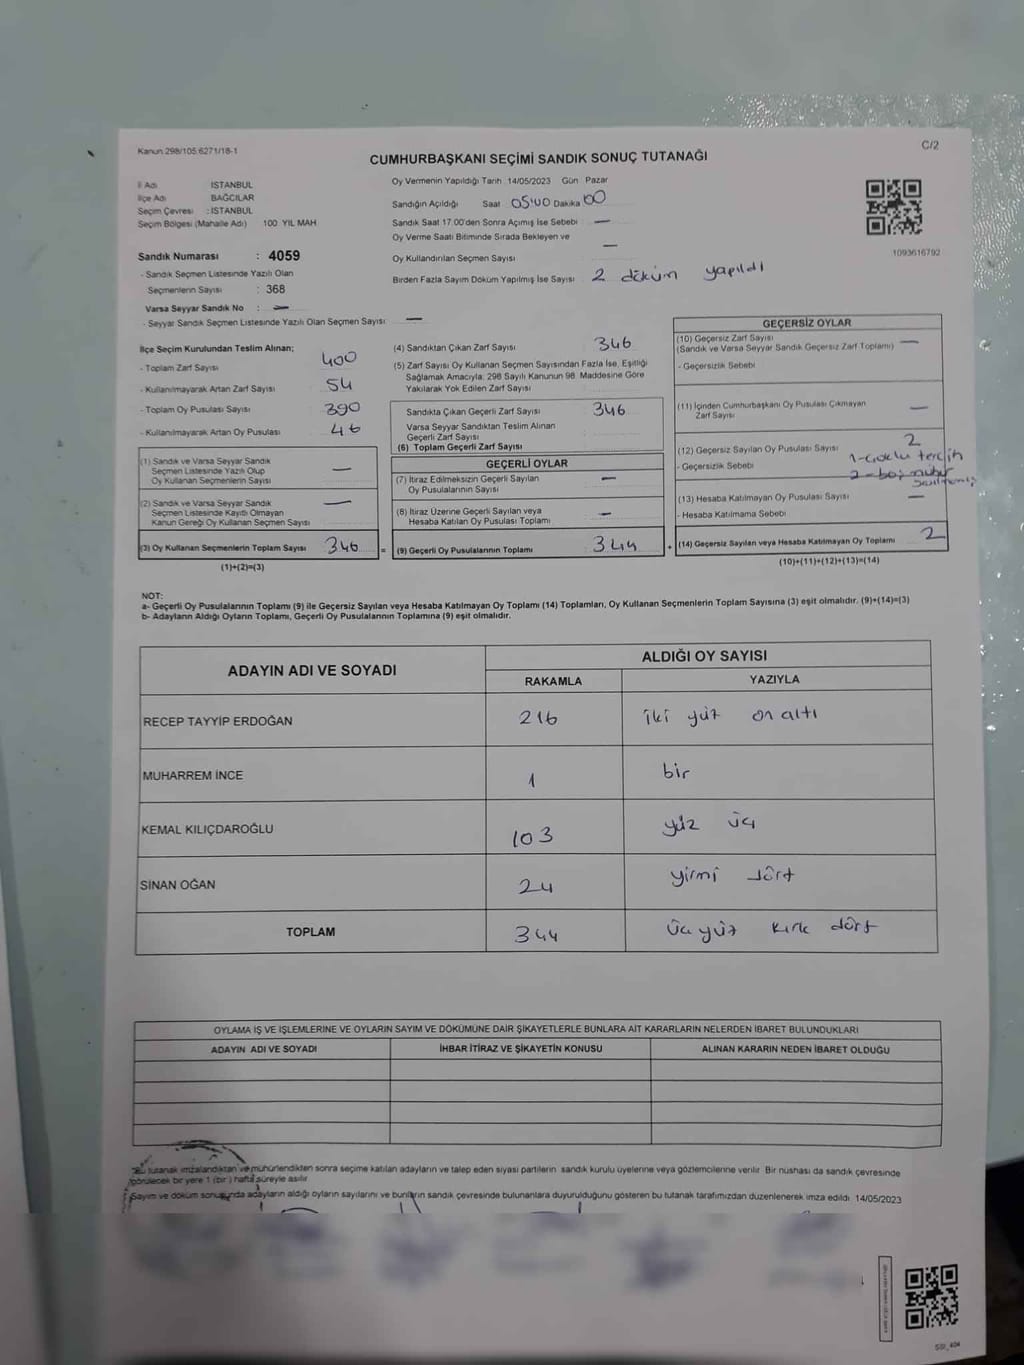 Kanun 298/105.6271/18-1
C/2
CUMHURBAŞKANI SEÇİMİ SANDIK SONUÇ TUTANAĞI
İl Adı İSTANBUL
İlçe Adı BAĞCILAR
Seçim Çevresi : İSTANBUL
Seçim Bölgesi (Mahalle Adı) 100 YIL MAH
Sandık Numarası : 4059
- Sandık Seçmen Listesinde Yazılı Olan
Seçmenlerin Sayısı : 368
Varsa Seyyar Sandık No : —
- Seyyar Sandık Seçmen Listesinde Yazılı Olan Seçmen Sayısı —
Oy Vermenin Yapıldığı Tarih 14/05/2023 Gün Pazar
Sandığın Açıldığı Saat Dakika 00
Sandık Saat 17.00'den Sonra Açılmış İse Sebebi —
Oy Verme Saati Bitiminde Sırada Bekleyen ve
Oy Kullandırılan Seçmen Sayısı —
Birden Fazla Sayım Döküm Yapılmış İse Sayısı 2 döküm yapıldı
1093616792
İlçe Seçim Kurulundan Teslim Alınan;
- Toplam Zarf Sayısı 400
- Kullanılmayarak Artan Zarf Sayısı 54
- Toplam Oy Pusulası Sayısı 390
- Kullanılmayarak Artan Oy Pusulası 46
(1) Sandık ve Varsa Seyyar Sandık
Seçmen Listesinde Yazılı Olup
Oy Kullanan Seçmenlerin Sayısı —
(2) Sandık ve Varsa Seyyar Sandık
Seçmen Listesinde Kayıtlı Olmayan
Kanun Gereği Oy Kullanan Seçmen Sayısı —
(3) Oy Kullanan Seçmenlerin Toplam Sayısı 346
(1)+(2)=(3)
(4) Sandıktan Çıkan Zarf Sayısı 346
(5) Zarf Sayısı Oy Kullanan Seçmen Sayısından Fazla İse, Eşitliği
Sağlamak Amacıyla; 298 Sayılı Kanunun 98. Maddesine Göre
Yakılarak Yok Edilen Zarf Sayısı
Sandıkta Çıkan Geçerli Zarf Sayısı 346
Varsa Seyyar Sandıktan Teslim Alınan
Geçerli Zarf Sayısı
(6) Toplam Geçerli Zarf Sayısı
GEÇERLİ OYLAR
(7) İtiraz Edilmeksizin Geçerli Sayılan
Oy Pusulalarının Sayısı —
(8) İtiraz Üzerine Geçerli Sayılan veya
Hesaba Katılan Oy Pusulası Toplamı —
= (9) Geçerli Oy Pusulalarının Toplamı 344
GEÇERSİZ OYLAR
(10) Geçersiz Zarf Sayısı
(Sandık ve Varsa Seyyar Sandık Geçersiz Zarf Toplamı) —
- Geçersizlik Sebebi
(11) İçinden Cumhurbaşkanı Oy Pusulası Çıkmayan
Zarf Sayısı —
(12) Geçersiz Sayılan Oy Pusulası Sayısı 2
1-çoklu tercih
- Geçersizlik Sebebi 2-boş mühür
(13) Hesaba Katılmayan Oy Pusulası Sayısı —
- Hesaba Katılmama Sebebi
+ (14) Geçersiz Sayılan veya Hesaba Katılmayan Oy Toplamı 2
(10)+(11)+(12)+(13)=(14)
NOT:
a- Geçerli Oy Pusulalarının Toplamı (9) ile Geçersiz Sayılan veya Hesaba Katılmayan Oy Toplamı (14) Toplamları, Oy Kullanan Seçmenlerin Toplam Sayısına (3) eşit olmalıdır. (9)+(14)=(3)
b- Adayların Aldığı Oyların Toplamı, Geçerli Oy Pusulalarının Toplamına (9) eşit olmalıdır.
ADAYIN ADI VE SOYADI
ALDIĞI OY SAYISI
RAKAMLA YAZIYLA
RECEP TAYYİP ERDOĞAN 216 iki yüz on altı
MUHARREM İNCE 1 bir
KEMAL KILIÇDAROĞLU 103 yüz üç
SİNAN OĞAN 24 yirmi dört
TOPLAM 344 üç yüz kırk dört
OYLAMA İŞ VE İŞLEMLERİNE VE OYLARIN SAYIM VE DÖKÜMÜNE DAİR ŞİKAYETLERLE BUNLARA AİT KARARLARIN NELERDEN İBARET BULUNDUKLARI
ADAYIN ADI VE SOYADI İHBAR İTİRAZ VE ŞİKAYETİN KONUSU ALINAN KARARIN NEDEN İBARET OLDUĞU
Bu tutanak imzalandıktan ve mühürlendikten sonra seçime katılan adayların ve talep eden siyasi partilerin sandık kurulu üyelerine veya gözlemcilerine verilir. Bir nüshası da sandık çevresinde
görülecek bir yere 1 (bir) hafta süreyle asılır.
Sayım ve döküm sonucunda adayların aldığı oyların sayılarını ve bunların sandık çevresinde bulunanlara duyurulduğunu gösteren bu tutanak tarafımızdan düzenlenerek imza edildi. 14/05/2023